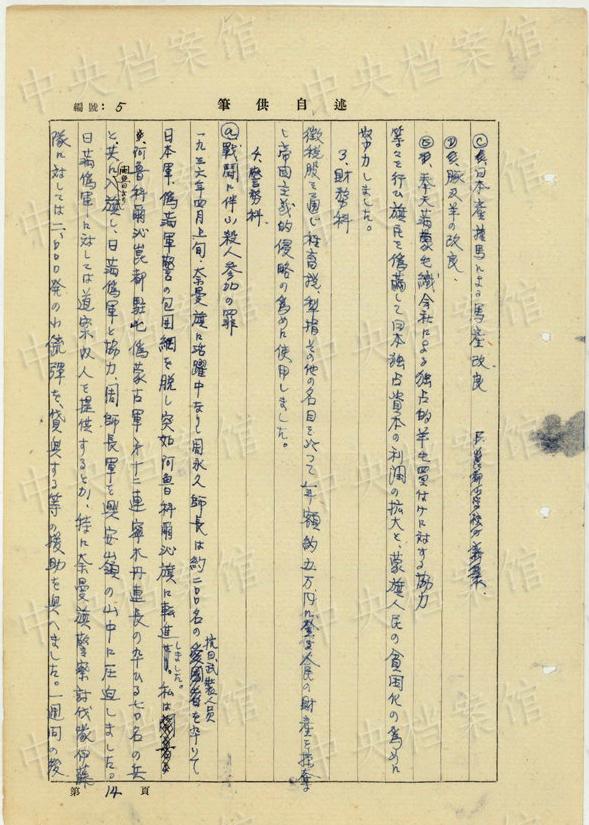 述自供筆
編號：5
ⓒ 日本産種馬による馬産改良
ⓓ 豚及羊の改良、
ⓔ 奉天満蒙毛織会社による独占的羊毛買付けに対する協力
等々を行ひ旗民を偽瞞して日本独占資本の利潤の拡大と、蒙旗人民の貧困化の為めに
努力しました。
3、財務科
徴税股を通じ牲畜税、その他の名目を以つて一年額約五万円に人民の財産を掠奪
し帝国主義的侵略の為めに使用しました。
4、警務科
ⓐ 戦闘に伴ふ殺人参加の罪
一九三六年四月上旬、奈曼旗に活躍中なりし周永久師長は約二〇〇名の抗日武装人員を率ひて
日本軍、偽満軍警の包囲網を脱し突如阿魯科爾沁旗に転進しました。私は
阿魯科爾沁昆都駐屯偽蒙古軍第十二連寧水丹連長の率ひる七〇名の兵
と共に入旗し、日満偽軍と協力、周師長軍を興安嶺の山中に圧迫しました。
日満偽軍に対しては道案内人を提供するとか、特に奈曼旗警察討伐隊伊藤
隊に対しては二、〇〇〇発の小銃弾を貸与する等の援助を与へました。一週間の後
第 14 頁
中央档案馆